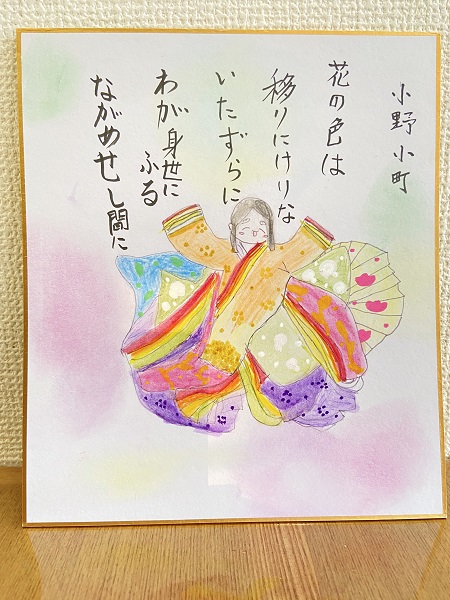 小野小町
花の色は
移りにけりな
いたずらに
わが身世に
ふる
ながめせし間に